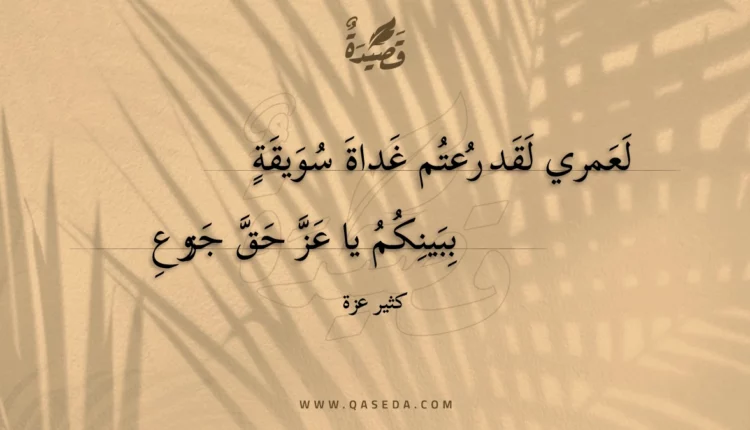 قَصِيدَةٌ
لَعَمري لَقَد رُعتُم غَداةَ سُوَيقَةٍ
بِبَينِكُمُ يا عَزَّ حَقَّ جَزوعِ
كثير عزة
WWW.QASEDA.COM